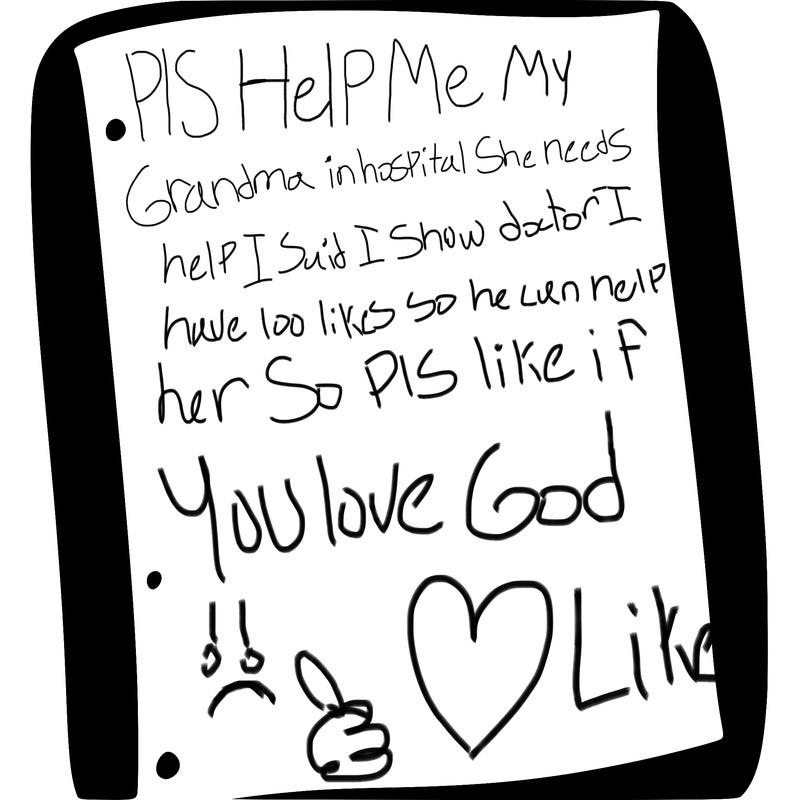 PlS HelP Me My
Grandma in hospital She needs
help I Said I Show doctor I
have 100 likes so he can help
her So PlS like if
You love God
Like